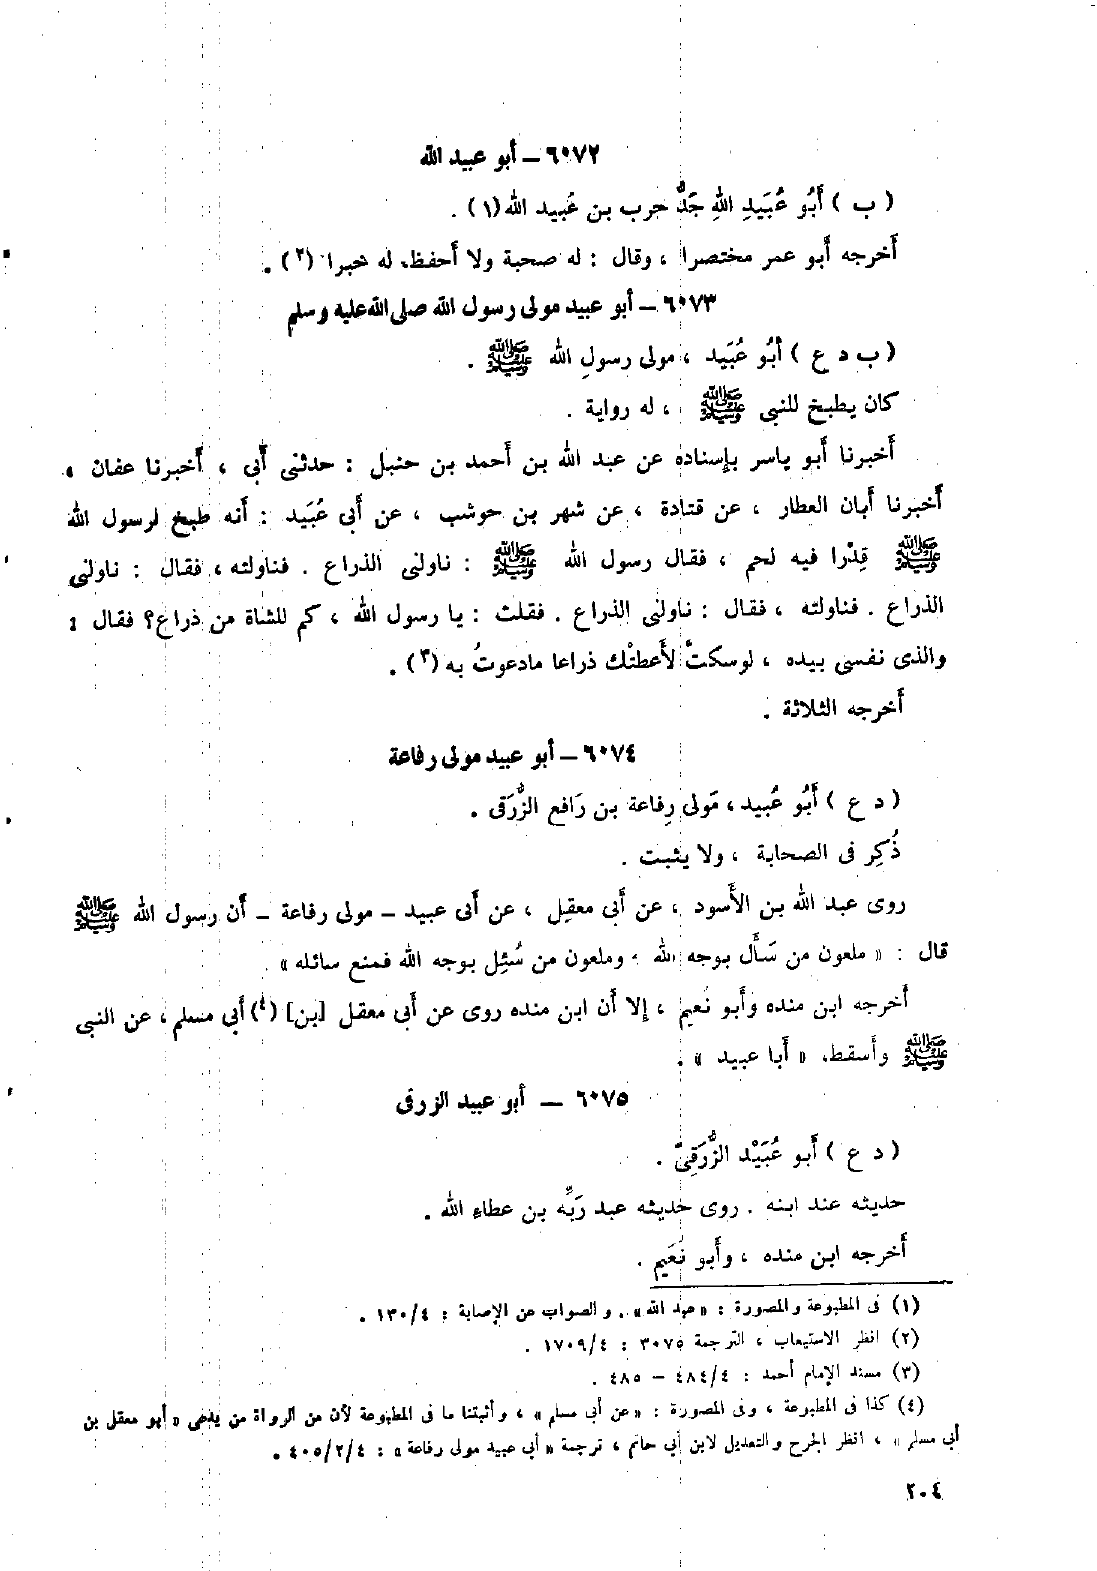 ٦٠٧٢ – أبو عبيد الله
( ب ) أَبُو عُبَيدِ اللهِ جَدُّ حرب بن عُبيد الله (١) .
أخرجه أبو عمر مختصرا ، وقال : له صحبة ولا أحفظ له خبرا (٢) .
٦٠٧٣ – أبو عبيد مولى رسول الله صلى الله عليه وسلم
( ب د ع ) أَبُو عُبَيد ، مولى رسولِ الله ﷺ .
كان يطبخ للنبى ﷺ ، له رواية .
أخبرنا أبو ياسر بإسناده عن عبد الله بن أحمد بن حنبل : حدثنى أبى ، أخبرنا عفان ،
أخبرنا أبان العطار ، عن قتادة ، عن شهر بن حوشب ، عن أبى عُبَيد : أنه طبخ لرسول الله
ﷺ قِدْرا فيه لحم ، فقال رسول الله ﷺ : ناولنى الذراع . فناولته ، فقال : ناولنى
الذراع . فناولته ، فقال : ناولنى الذراع . فقلت : يا رسول الله ، كم للشاة من ذراع؟ فقال :
والذى نفسى بيده ، لوسكتَّ لأَعطتْك ذراعا مادعوتُ به (٣) .
أخرجه الثلاثة .
٦٠٧٤ – أبو عبيد مولى رفاعة
( د ع ) أَبُو عُبيد ، مَولى رِفاعة بن رَافع الزُّرَقى .
ذُكِر فى الصحابة ، ولا يثبت .
روى عبد الله بن الأسود ، عن أبى معقِل ، عن أبى عبيد – مولى رفاعة – أن رسول الله ﷺ
قال : « ملعون من سَأَل بوجه الله ، وملعون من سُئِل بوجه الله فمنع سائله » .
أخرجه ابن منده وأبو نُعيم ، إلا أن ابن منده روى عن أبى معقل [بن] (٤) أبى مسلم ، عن النبى
ﷺ وأسقط « أبا عبيد » .
٦٠٧٥ – أبو عبيد الزرقى
( د ع ) أبو عُبَيْد الزُّرَقِىّ .
حديثه عند ابنه . روى حديثه عبد رَبِّه بن عطاءِ الله .
أخرجه ابن منده ، وأبو نُعَيم .
(١) فى المطبوعة والمصورة : « عبد الله » . والصواب عن الإصابة : ١٣٠/٤ .
(٢) انظر الاستيعاب ، الترجمة ٣٠٧٥ : ١٧٠٩/٤ .
(٣) مسند الإمام أحمد : ٤٨٤/٤ – ٤٨٥ .
(٤) كذا فى المطبوعة ، وفى المصورة : « عن أبى مسلم » ، وأثبتنا ما فى المطبوعة لأن من الرواة من يدعى « أبو معقل بن
أبى مسلم » ، انظر الجرح والتعديل لابن أبى حاتم ، ترجمة « أبى عبيد مولى رفاعة » : ٤٠٥/٢/٤ .
٢٠٤